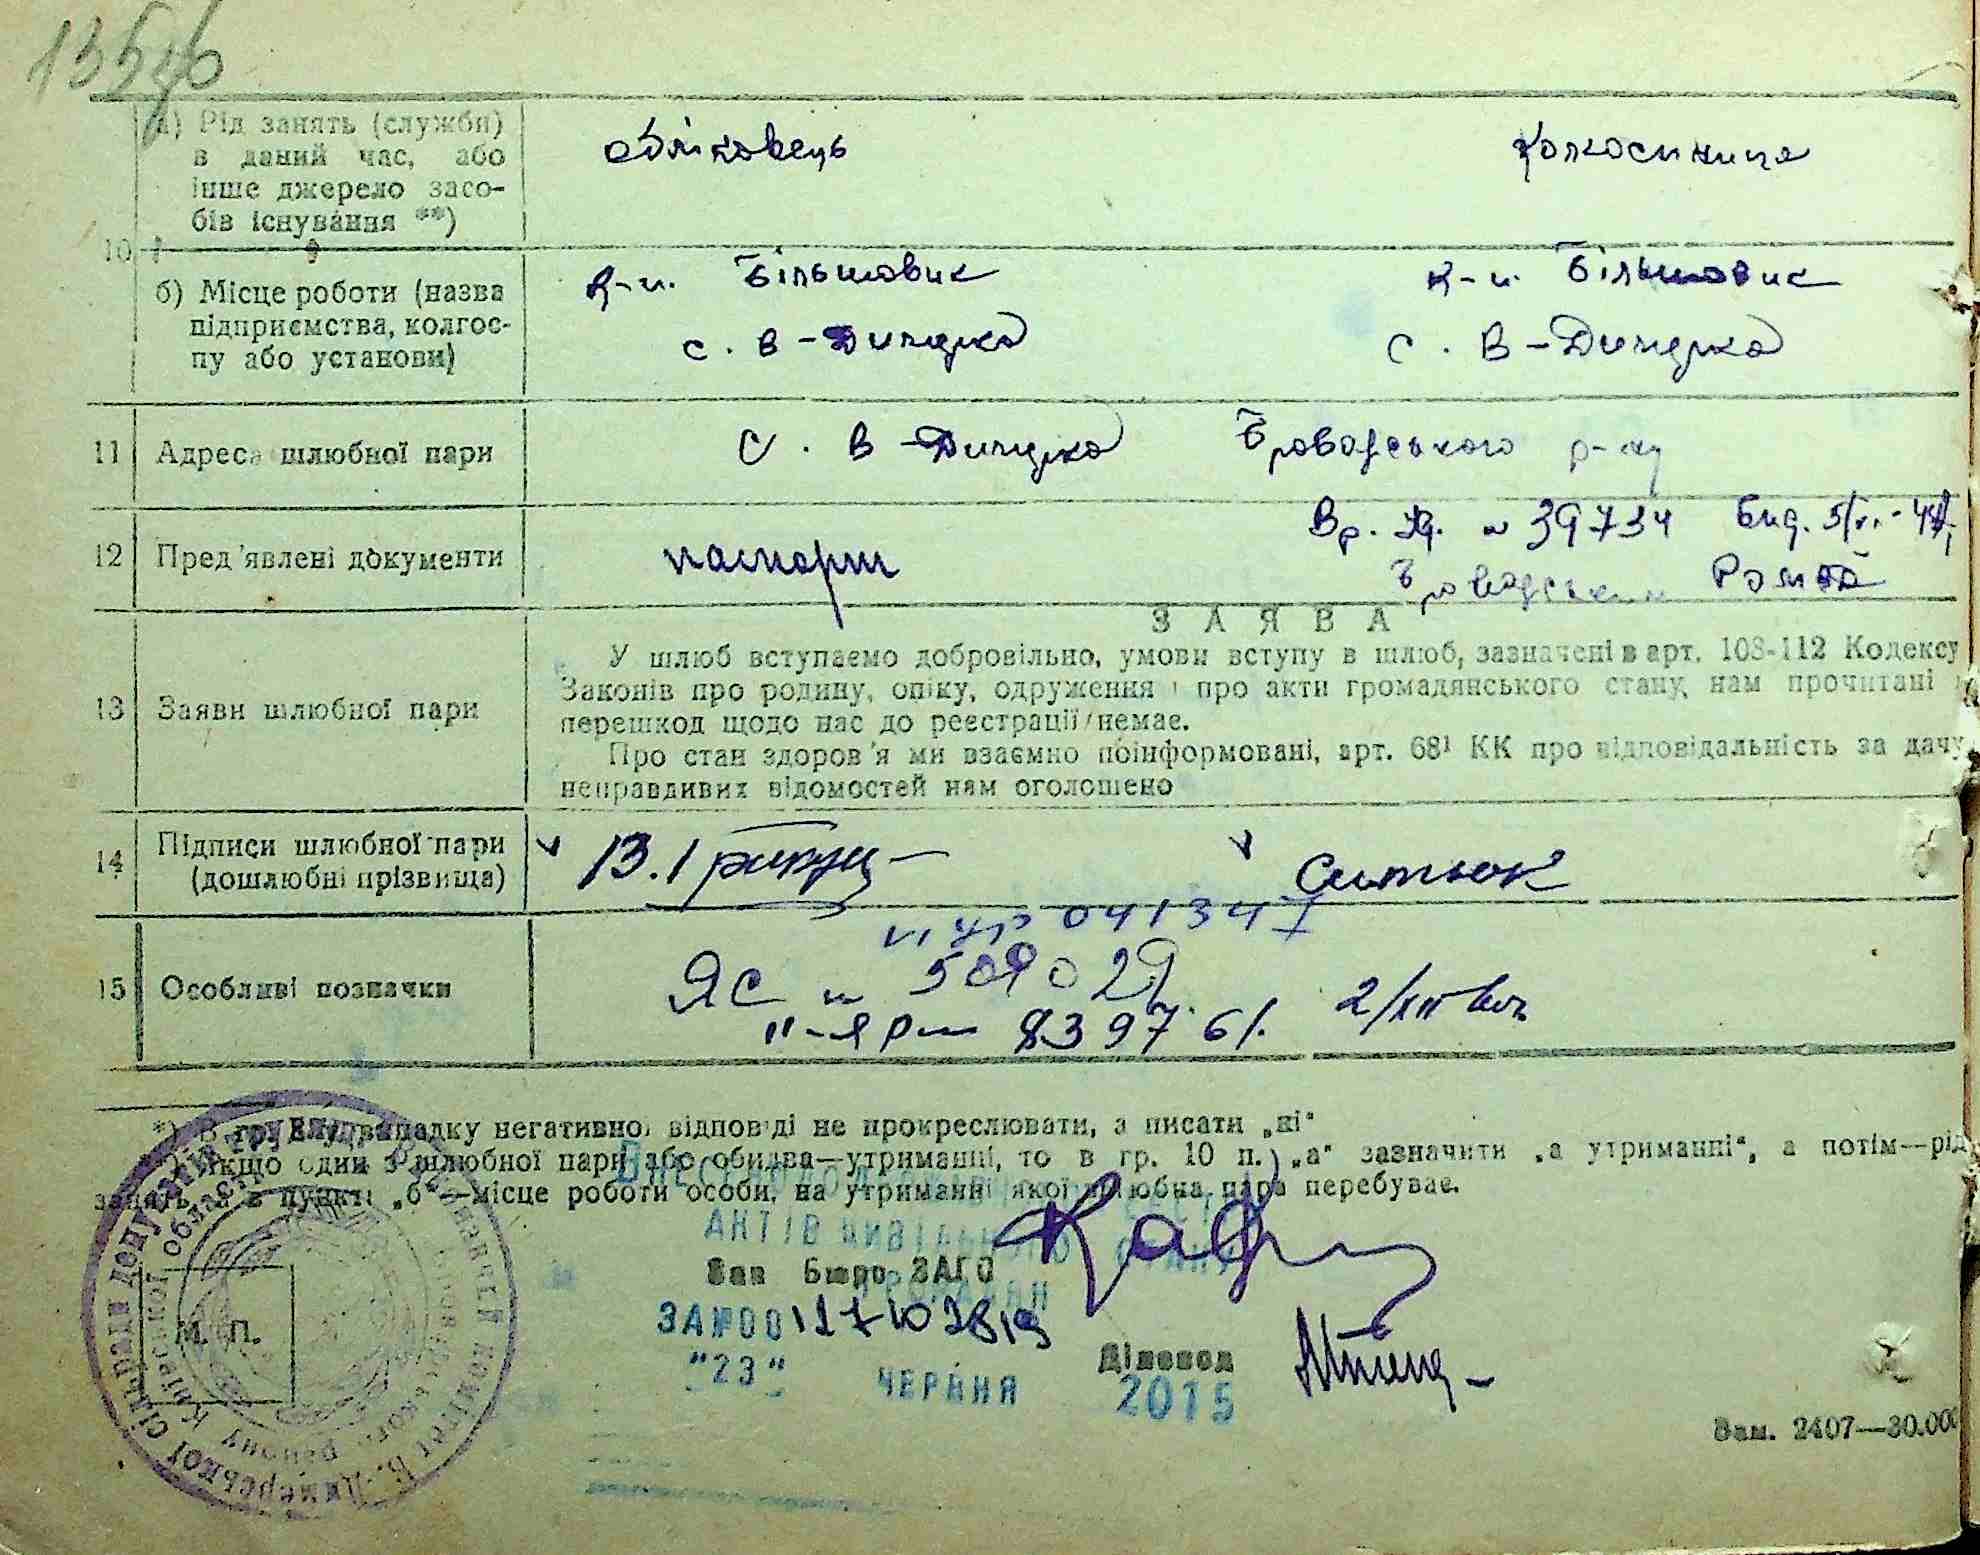 а) Рід занять (служби)
в даний час, або
інше джерело засо-
бів існування **)
обліковець
Колгосниця
10
б) Місце роботи (назва
підприємства, колгос-
пу або установи)
к-п. Більшовик
с. В-Димерка
к-п. Більшовик
с. В-Димерка
11
Адреса шлюбної пари
с. В-Димерка Броварського р-ну
12
Пред'явлені документи
паспорт
Вр. № 39734 Вид. 5/
Броварським
13
Заяви шлюбної пари
ЗАЯВА
У шлюб вступаємо добровільно, умови вступу в шлюб, зазначені в арт. 108-112 Кодексу
Законів про родину, опіку, одруження і про акти громадянського стану, нам прочитані і
перешкод щодо нас до реєстрації немає.
Про стан здоров'я ми взаємно поінформовані, арт. 68¹ КК про відповідальність за дачу
неправдивих відомостей нам оголошено
14
Підписи шлюбної пари
(дошлюбні прізвища)
Ситнюк
041347
15
Особливі позначки
ЯС № 509029
83976
*) В гр. випадку негативної відповіді не прокреслювати, а писати „ні“
Якщо один з шлюбної пари або обидва—утриманці, то в гр. 10 п. „а“ зазначити „а утриманні“, а потім—рід
занять, а в пункті „б“—місце роботи особи, на утриманні якої шлюбна пара перебуває.
АКТІВ ЦИВІЛЬНОГО СТАНУ
ГРОМАДЯН
Зав Бюро ЗАГС
ЗА №00117102819
"23" ЧЕРВНЯ 2015
Діловод
М. П.
Зам. 2407—30.000